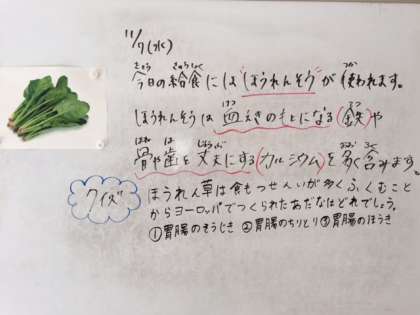 11/7(水)
今日の給食には"ほうれんそう"が使われます。
ほうれんそうは血えきのもとになる(鉄)や
骨や歯を丈夫にする(カルシウム)を多く含みます。
クイズ
ほうれん草は食もつせんいが多くふくむこと
からヨーロッパでつくられたあだなはどれでしょう。
①胃腸のそうじき ②胃腸のちりとり ③胃腸のほうき